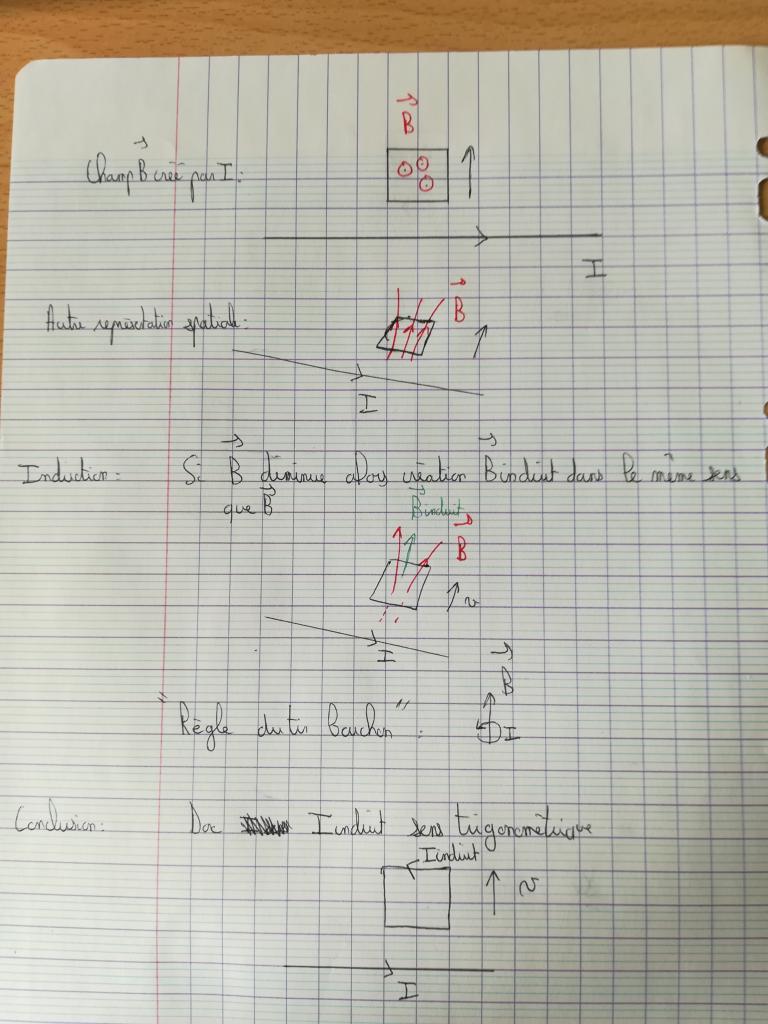 B
Champ B créé par I:
I
Autre représentation spatiale:
B
I
Induction: Si B diminue alors création B induit dans le même sens
que B
B induit
B
v
I
B
"Règle du tir bouchon": I
Conclusion: Doc I induit sens trigonométrique
I induit
v
I